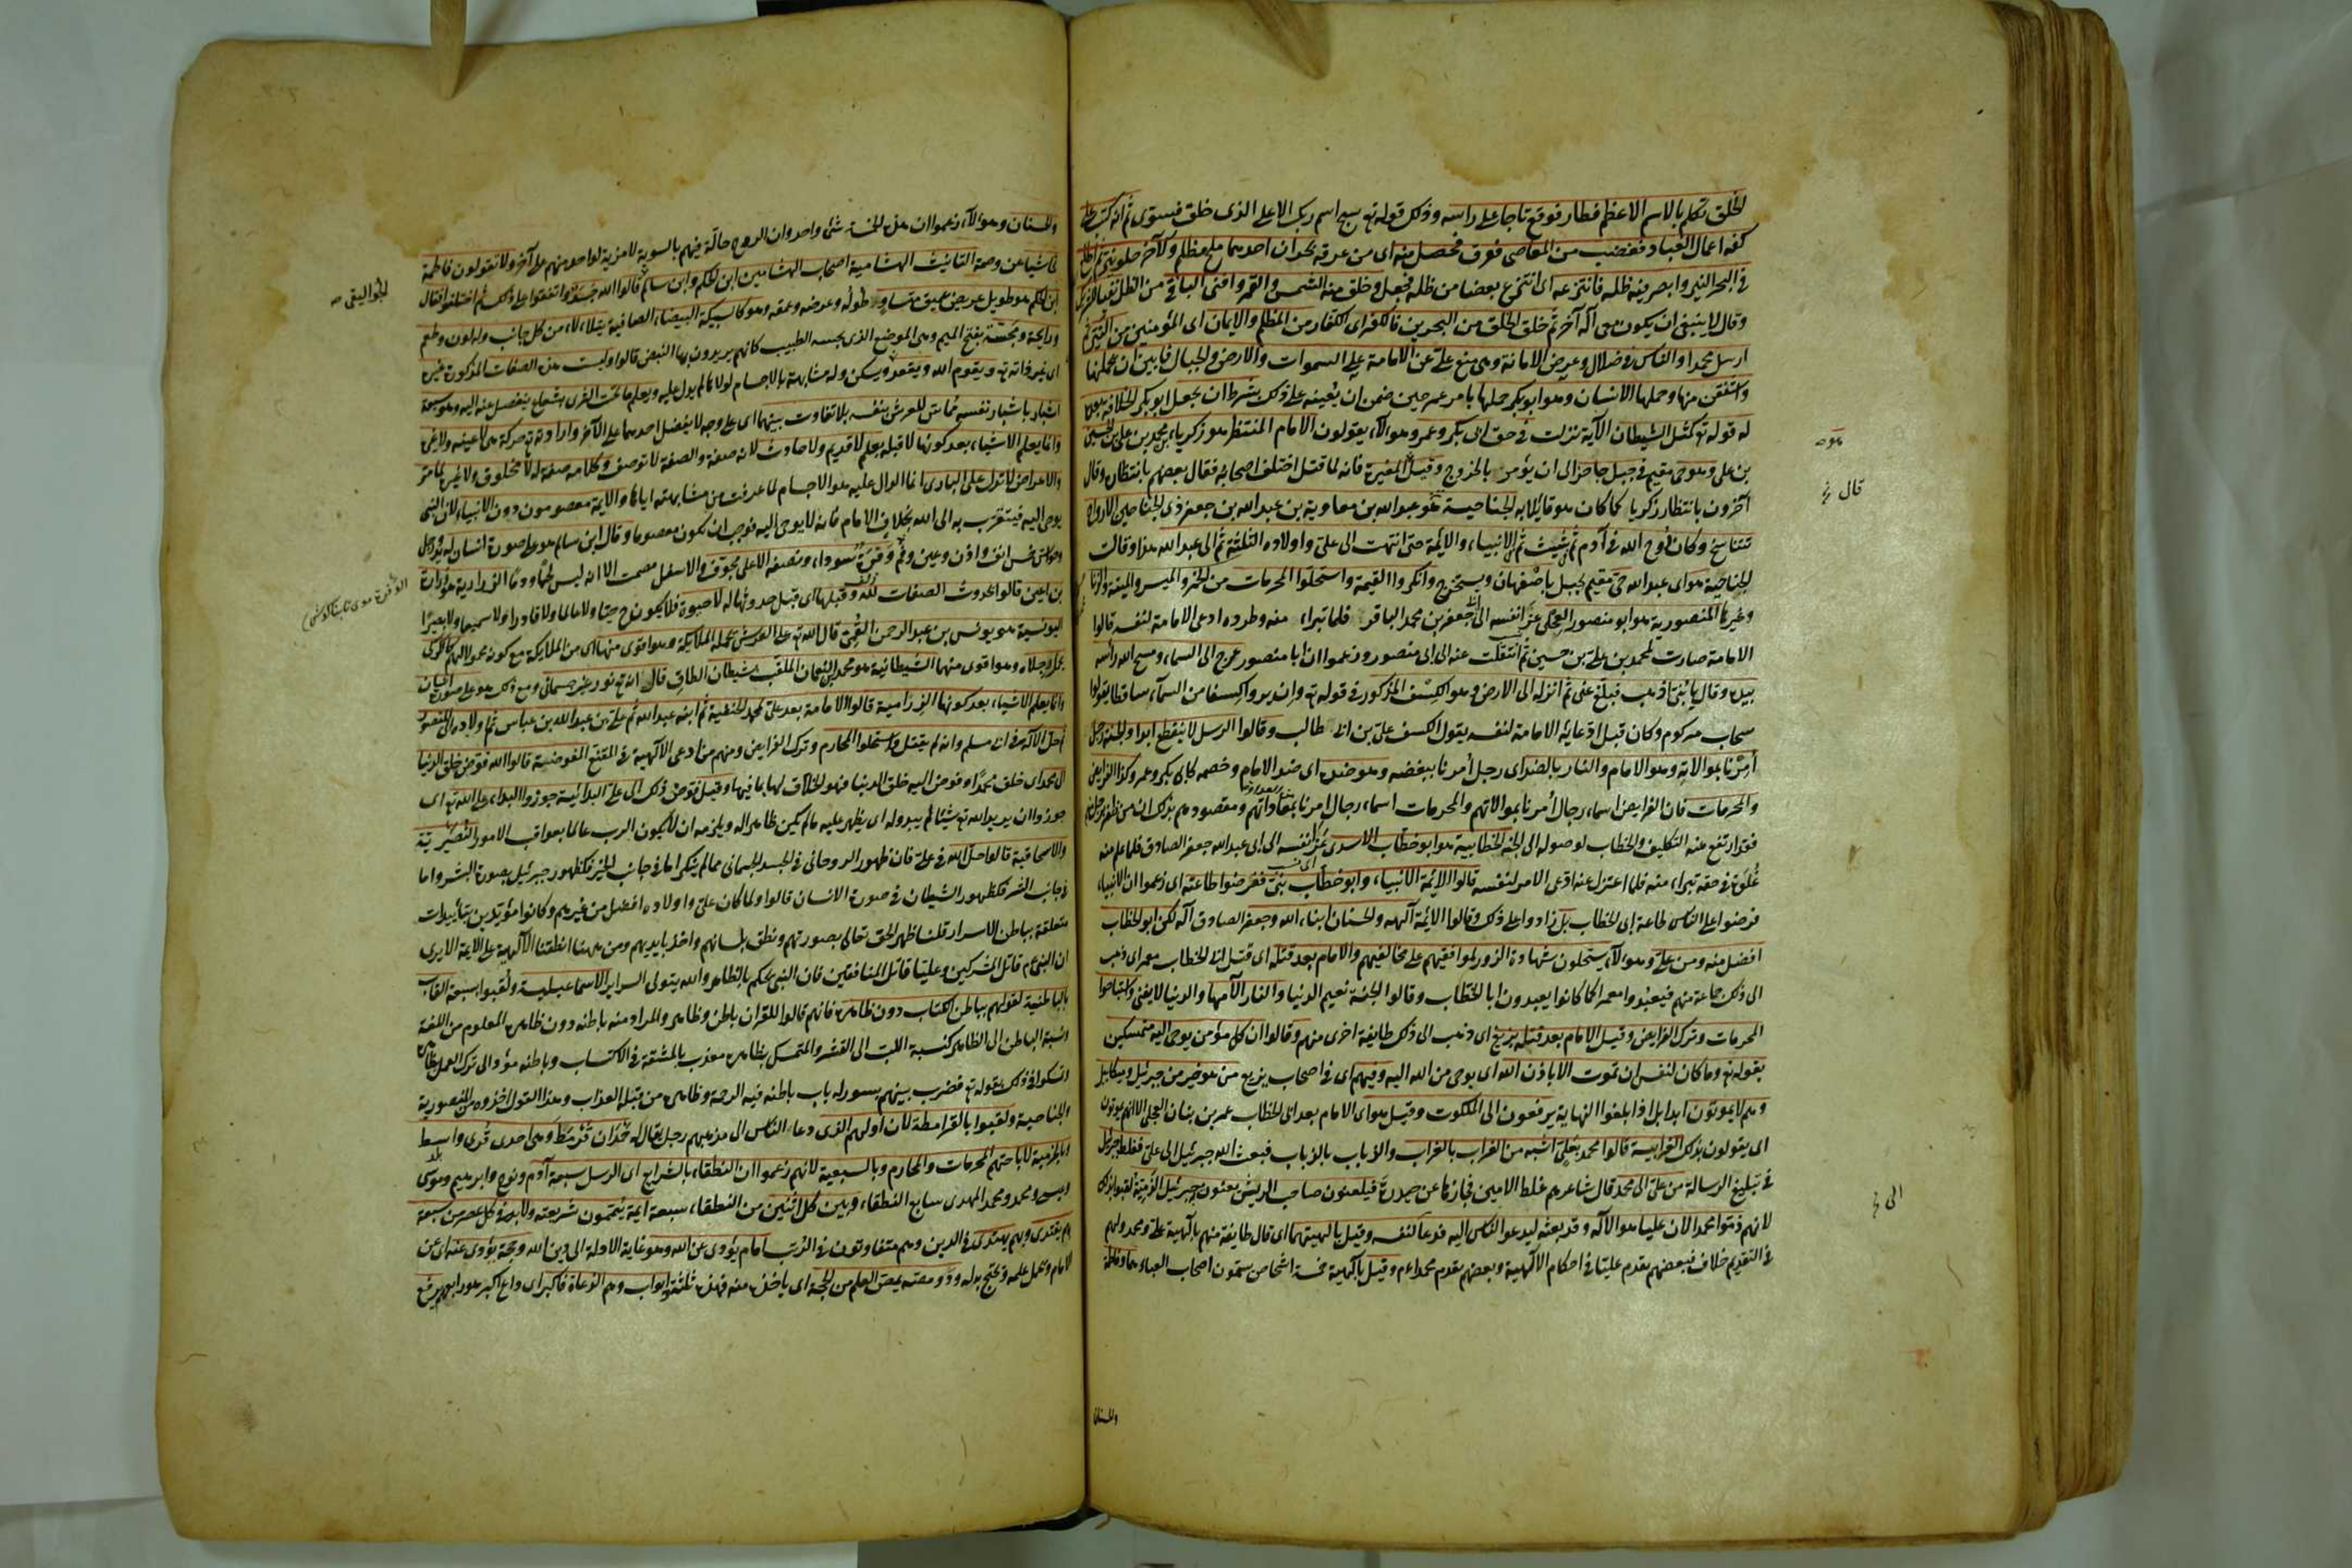 الخلق تكلم بالاسم الاعظم فطار فوقع تاجا على راسه وذلك قوله تع سبح اسم ربك الاعلى الذى خلق فسوى ثم انه كتب على
كفه اعمال العباد فغضب من المعاصى فعرق فحصل منه اى من عرقه بحران احدهما ملح مظلم والآخر حلو نير ثم اطلع
فى البحر النير وابصر فيه ظله فانتزعه اى انتزع بعضا من ظله فجعل وخلق منه الشمس والقمر وافنى الباقى من الظل نفيا للشريك
وقال لا ينبغى ان يكون معى آله آخر ثم خلق الخلق من البحرين فالكفر اى الكفار من المظلم والايمان اى المؤمنين من النير ثم
ارسل محمدا والناس فى ضلال وعرض الامانة وهى منع على عن الامامة على السموات والارض والجبال فابين ان يحملنها
واشفقن منها وحملها الانسان وهو ابو بكر حملها بامر عمر حين ضمن ان يعينه على ذلك بشرط ان يجعل ابو بكر الخلافة بعده
له قوله تع كمثل الشيطان الآية نزلت فى حق ابى بكر وعمر وهؤلاء يقولون الامام المنتظر هو زكريا بن محمد بن على بن الحسين
بن على وهو حى مقيم فى جبل حاجز الى ان يؤمر بالخروج وقيل المغيرة فانه لما قتل اختلف اصحابه فقال بعضهم بانتظاره وقال
آخرون بانتظار زكريا كما كان هو قائلا به الجناحية هو عبد الله بن معاوية بن عبد الله بن جعفر ذى الجناحين الارواح
تتناسخ وكان روح الله فى آدم ثم شيث ثم الانبياء والايمة حتى انتهت الى على واولاده الثلثة ثم الى عبد الله هذا وقالت
الجناحية هو اى عبد الله حى مقيم بجبل باصفهان وسيخرج وانكروا القيمة واستحلوا المحرمات من الخمر والميسر والميتة والزنا
وغيرها المنصورية هو ابو منصور العجلى عزا نفسه الى ابى جعفر بن محمد الباقر فلما تبراء منه وطرده ادعى الامامة لنفسه قالوا
الامامة صارت لمحمد بن على بن حسين ثم انتقلت عنه الى ابى منصور وزعموا ان ابا منصور عرج الى السماء ومسح الله راسه
بيده وقال يا بنى اذهب فبلغ عنى ثم انزله الى الارض وهو الكسف المذكور فى قوله تع وان يروا كسفا من السماء ساقطا يقولوا
سحاب مركوم وكان قبل ادعايه الامامة لنفسه يقول الكسف على بن ابى طالب وقالوا الرسل لا ينقطع ابدا والجنة رجل
أمرنا بموالاته وهو الامام والنار بالضد اى رجل أمرنا ببغضه وهو ضده اى ضد الامام وخصمه كابى بكر وعمر وكذا الفرايض
والمحرمات فان الفرايض اسماء رجال أمرنا بموالاتهم والمحرمات اسماء رجال امرنا بمعاداتهم ومقصودهم بذلك ان من ظفر برجل منهم
فقد ارتفع عنه التكليف والخطاب لوصوله الى الجنة الخطابية هو ابو خطاب الاسدى عزا نفسه الى ابى عبد الله جعفر الصادق فلما علم منه
غلوه فى حقه تبراء منه فلما اعتزل عنه ادعى الامر لنفسه قالوا الايمة الانبياء وابو خطاب نبى ففرضوا طاعته اى زعموا ان الانبياء
فرضوا على الناس طاعة ابى الخطاب بل زادوا على ذلك وقالوا الايمة آلهه والحسنان ابناء الله وجعفر الصادق آله لكن ابو الخطاب
افضل منه ومن على وهؤلاء يستحلون شهادة الزور لموافقيهم على مخالفيهم والامام بعد قتله اى قتل ابى الخطاب معمر اى ذهب
الى ذلك جماعة منهم فيعبدوا معمرا كما كانوا يعبدون ابا الخطاب وقالوا الجنة نعيم الدنيا والنار آلامها والدنيا لا يفنى واستباحوا
المحرمات وترك الفرايض وقيل الامام بعد قتله بزيغ اى ذهب الى ذلك طايفة اخرى منهم وقالوا ان كل مؤمن يوحى اليه متمسكين
بقوله تع وما كان لنفس ان تموت الا باذن الله اى بوحى من الله اليه وفيهم اى فى اصحاب بزيع من هو خير من جبرئيل وميكائيل
وهم لا يموتون ابدا بل اذا بلغوا النهاية يرفعون الى الملكوت وقيل هو اى الامام بعد ابى الخطاب عمر بن بنان العجلى الا انهم يموتون
اى يقولون بذلك الغرابية قالوا محمد بعلى اشبه من الغراب بالغراب والذباب بالذباب فبعث الله جبرئيل الى على فغلط جبرئيل
فى تبليغ الرسالة من على الى محمد قال شاعرهم غلط الامين فجازها عن حيدرة فيلعنون صاحب الريش يعنون جبرئيل الذمية لقبوا بذلك
لانهم ذموا محمدا لان عليا هو الآله وقد بعثه ليدعو الناس اليه فدعا لنفسه وقيل بالهيتهما اى قال طايفة منهم بآلهية على ومحمد ولهم
فى التقديم خلاف فبعضهم يقدم عليا فى احكام الالهية وبعضهم يقدم محمداء م وقيل بآلهية خمسة اشخاص يسمون اصحاب العباء هما وفاطمة
والحسنان
هوصه
قال نخ
الى نخ
والحسنان وهؤلاء زعموا ان هذه الخمسة شئ واحد وان الروح حالة فيهم بالسوية لا مزية لواحد منهم على آخر ولا يقولون فاطمة
تحاشيا عن وصمة التانيث الهشامية اصحاب الهشامين ابن الحكم وابن سالم قالوا الله جسد واتفقوا على ذلك ثم اختلفوا فقال
ابن الحكم هو طويل عريض عميق متساو طوله وعرضه وعمقه وهو كالسبيكة البيضاء الصافية يتلالاء من كل جانب وله لون وطعم
ورايحة ومجسة بفتح الميم وهى الموضع الذى يجسه الطبيب كانهم يريدون بها النبض قالوا وليست هذه الصفات المذكورة غيره
اى غير ذاته تع ويقوم الله ويقعد ويسكن وله مشابهة بالاجسام لولاها لم يدل عليه ويعلم ما تحت الثرى بشعاع ينفصل عنه اليه وهو سبعة
اشبار باشبار نفسه مماس للعرش بنفسه بلا تفاوت بينهما اى على وجه لا يفضل احدهما على الآخر وارادته تع حركة هى لا عينه ولا غيره
وانما يعلم الاشياء بعد كونها لا قبله بعلم لا قديم ولا حادث لانه صفة والصفة لا توصف وكلامه صفة له لا مخلوق ولا غيره لما مر
والاعراض لا تدل على البارى انما الدال عليه هو الاجسام لما عرفت من مشابهته اياها والايمة معصومون دون الانبياء لان النبى
يوحى اليه فيتقرب به الى الله بخلاف الامام فانه لا يوحى اليه فوجب ان يكون معصوما وقال ابن سالم هو على صورة انسان له يد ورجل
وحواس خمس انف واذن وعين وفم وفرة سوداء ونصفه الاعلى مجوف والاسفل مصمت الا انه ليس لحما ودما الزرارية هو زرارة
بن اعين قالوا بحدوث الصفات لله وقبلها اى قبل حدوثها له لا حيوة فلا يكون ح حيا ولا عالما ولا قادرا ولا سميعا ولا بصيرا
اليونسية هو يونس بن عبد الرحمن القمى قال الله تع على العرش تحمله الملائكة وهو اقوى منها اى من الملايكة مع كونه محمولا لهم كالكركى
يحمله رجلاه وهو اقوى منهما الشيطانية هو محمد بن النعمان الملقب بشيطان الطاق قال انه تع نور غير جسمانى ومع ذلك هو على صورة انسان
وانما يعلم الاشياء بعد كونها الرزامية قالوا الامامة بعد على لمحمد بن الحنفية ثم ابنه عبد الله ثم على بن عبد الله بن عباس ثم اولاده الى المنصور
ثم حل الآله فى ابى مسلم وانه لم يقتل واستحلوا المحارم وترك الفرايض ومنهم من ادعى الآلهية فى المقنع المفوضية قالوا الله فوض خلق الدنيا
الى محمد اى خلق محمدا وفوض اليه خلق الدنيا فهو الخلاق لها بما فيها وقيل فوض ذلك الى على البدائية جوزوا البداء على الله تع اى
جوزوا ان يريد الله تع شيئا ثم يبدو له اى يظهر عليه ما لم يكن ظاهرا له ويلزمه ان لا يكون الرب عالما بعواقب الامور النصيرية
والاسحاقية قالوا حل الله فى على فان ظهور الروحانى فى الجسد الجسمانى مما لم ينكر اما فى جانب الخير فكظهور جبرئيل بصورة البشر واما
فى جانب الشر فكظهور الشيطان فى صورة الانسان قالوا ولما كان على واولاده افضل من غيرهم وكانوا مؤيدين بتأييدات
متعلقة بباطن الاسرار قلنا ظهر الحق تعالى بصورتهم ونطق بلسانهم واخذ بايديهم ومن ههنا اطلقنا الآلهية على الايمة الا يرى
ان النبى م قاتل المشركين وعليا قاتل المنافقين فان النبى يحكم بالظاهر والله يتولى السراير الاسماعيلية ولقبوا بسبعة القاب
بالباطنية لقولهم بباطن الكتاب دون ظاهره فانهم قالوا للقران باطن وظاهر والمراد منه باطنه دون ظاهره المعلوم من اللغة
ونسبة الباطن الى الظاهر كنسبة اللب الى القشر والمتمسك بظاهره معذب بالمشقة فى الاكتساب وباطنه مؤد الى ترك العمل بظاهره
وتمسكوا فى ذلك بقوله تع فضرب بينهم بسور له باب باطنه فيه الرحمة وظاهره من قبله العذاب وهذا القول اخذوه من المنصورية
والجناحية ولقبوا بالقرامطة لان اولهم الذى دعا الناس الى مذهبهم رجل يقال له حمدان قرمط وهى احدى قرى واسط
وبالخرمية لاباحتهم المحرمات والمحارم وبالسبعية لانهم زعموا ان النطقاء بالشرايع اى الرسل سبعة آدم ونوح وابرهيم وموسى
وعيسى ومحمد ومحمد المهدى سابع النطقاء وبين كل اثنين من النطقاء سبعة ايمة يتممون شريعته ولا بد فى كل عصر من سبعة
بهم يقتدى وبهم يهتدى فى الدين وهم متفاوتون فى الرتب امام يؤدى عن الله وهو غاية الادلة الى دين الله وحجة يؤدى عنه اى عن
الامام ويحمل علمه ويحتج به له وذو مصة يمص العلم من الحجة اى ياخذه منه فهذه ثلثة وابواب وهم الدعاة فاكبر اى داع اكبر هو رابعهم يرفع
الجواليقى صه